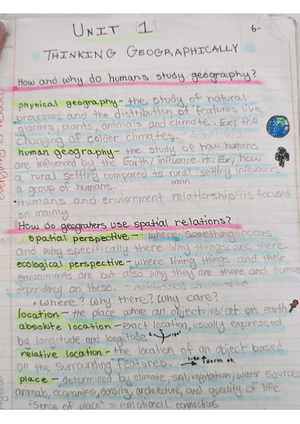 UNIT 1
6-
THINKING GEOGRAPHICALLY
How and why do humans study geography?
physical geography- the study of natural
processes and the distribution of features like
plants, animals and climate. Ex; the
changing of colder climates.
human geography- the study of how humans
are influenced by the Earth/influence it. Ex; how
a rural setting compared to rural setting influence
urban
a group of humans.
·humans and enviornment relationship is focused
on mainly
How do geograhers use spatial relations?
spatial perspective- where something occurs
and why specifically there. Why things are there.
ecological perspective- where living things and their
enviornments are but also why they are there and human
dependency on these.
• Where? Why there? Why care?
location- the place where an object is at on earth
absolute location- exact location, usually expressed
by langitude and longitude
relative location- the location of an object based
on the surrounding features.
place- determined by climate, soil, vegitation, water sources
animals, economics, density, architecture, and quality of life
"Sense of place" = emotional connections